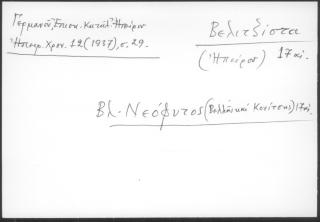 Γερμανοῦ, Ἐπισκ. Κατάλ. Ἠπείρου
Ἠπειρ. Χρον. 12 (1937), σ. 29.
Βελιτζίστα
(Ἠπείρου) 17 αι.
Βλ. Νεόφυτος (Βελλᾶς καὶ Κονίτσης) 17 αι.